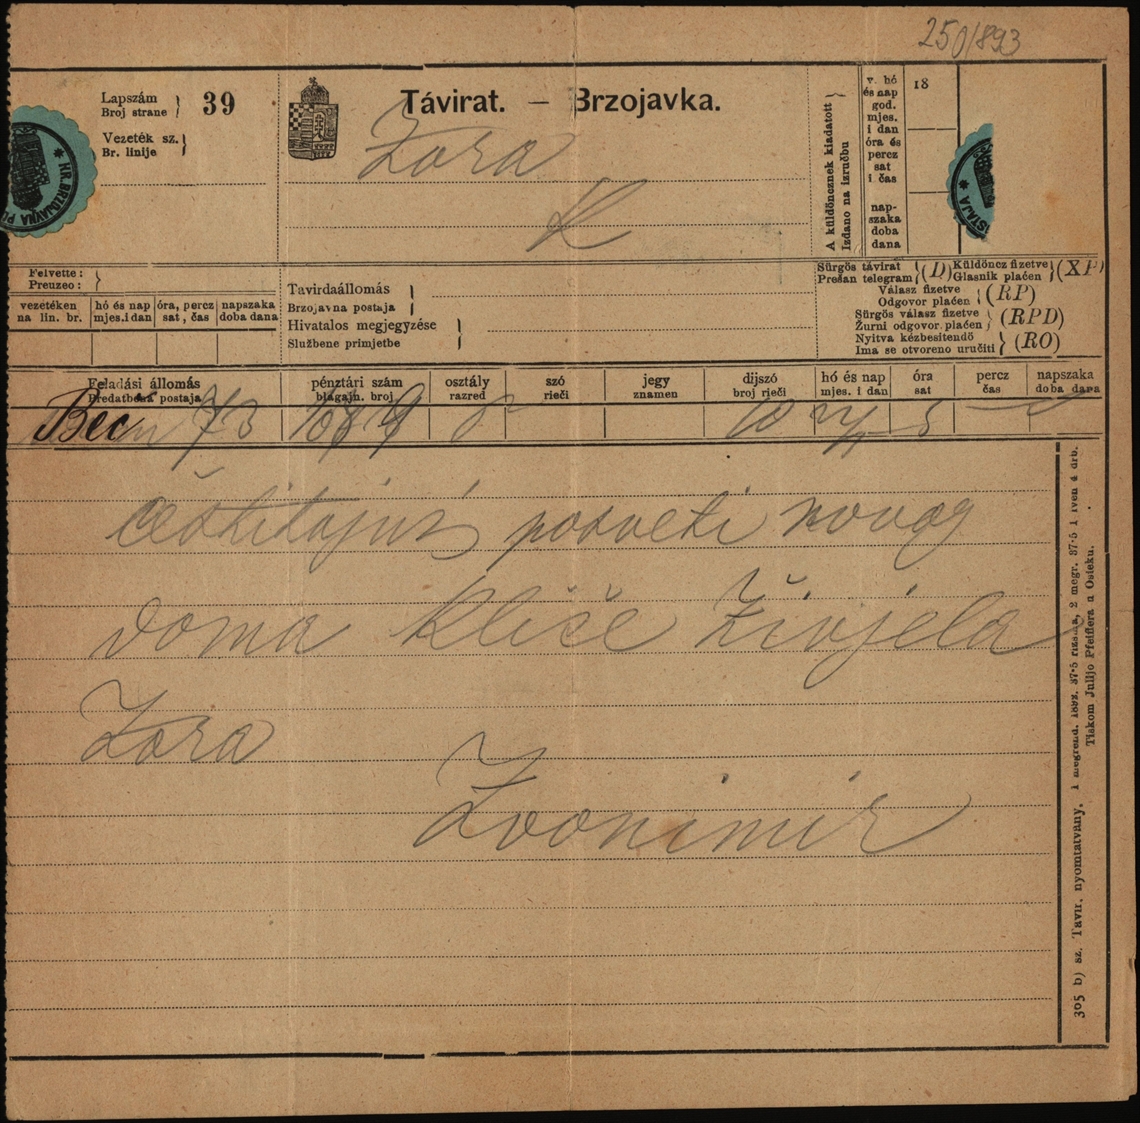 250/893
Lapszám
Broj strane } 39
Vezeték sz.
Br. linije }
Távirat. — Brzojavka.
Zora
K
A küldöncznek kiadatott
Izdano na izručbu }
v. hó
és nap
god.
mjes.
i dan
óra és
percz
sat
i čas
nap-
szaka
doba
dana
18
HR. BRZOJAVNA
Felvette :
Preuzeo : }
vezetéken
na lin. br.
hó és nap
mjes. i dan
óra, percz
sat , čas
napszaka
doba dana
Tavirdaállomás
Brzojavna postaja }
Hivatalos megjegyzése
Službene primjetbe }
Sürgös távirat
Prešan telegram } (D)
Küldöncz fizetve
Glasnik plaćen } (XP)
Válasz fizetve
Odgovor plaćen } (RP)
Sürgös válasz fizetve
Žurni odgovor plaćen } (RPD)
Nyitva kézbesitendö
Ima se otvoreno uručiti } (RO)
Feladási állomás
Predatbena postaja
pénztári szám
blagajn. broj
osztály
razred
szó
rieči
jegy
znamen
dijszó
broj rieči
hó és nap
mjes. i dan
óra
sat
percz
čas
napszaka
doba dana
Becn 73 10 5
čestitajuć posveti novog
doma kliče živjela
Zora
Zvonimir
305 b) sz. Tavir. nyomtatvány. 1 megrend. 1892. 37·5 rizsma, 2 megr. 37·5 1 iven 4 drb.
Tiskom Julijo Pfeiffera u Osieku.